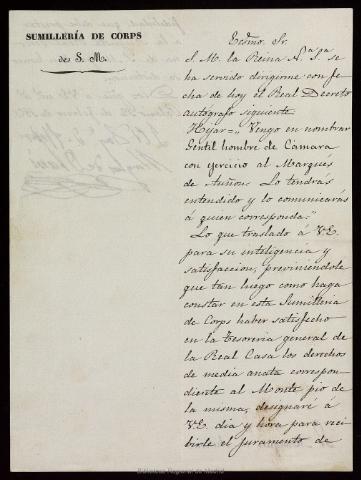 SUMILLERÍA DE CORPS
de S. M.
Ecsmo. Sr.
S. M. la Reina N.ª S.ª se
ha servido dirigirme con fe
cha de hoy el Real Decreto
autógrafo siguiente
Hijar = "Vengo en nombrar
Gentil hombre de Cámara
con ejercicio al Marques
de Auñon. Lo tendrás
entendido y lo comunicarás
á quien corresponda."
Lo que traslado á V.E.
para su inteligencia y
satisfaccion, previniéndole
que tan luego como haga
constar en esta Sumilleria
de Corps haber satisfecho
en la Tesoreria general de
la Real Casa los derechos
de media anata correspon
diente al Monte pio de
la misma, designaré á
V.E. dia y hora para reci
birle el juramento de
Biblioteca Regional de Madrid